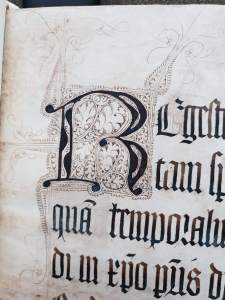 REgestr
tam sp
quā temporaliu
di in xp̄o pr̄is d